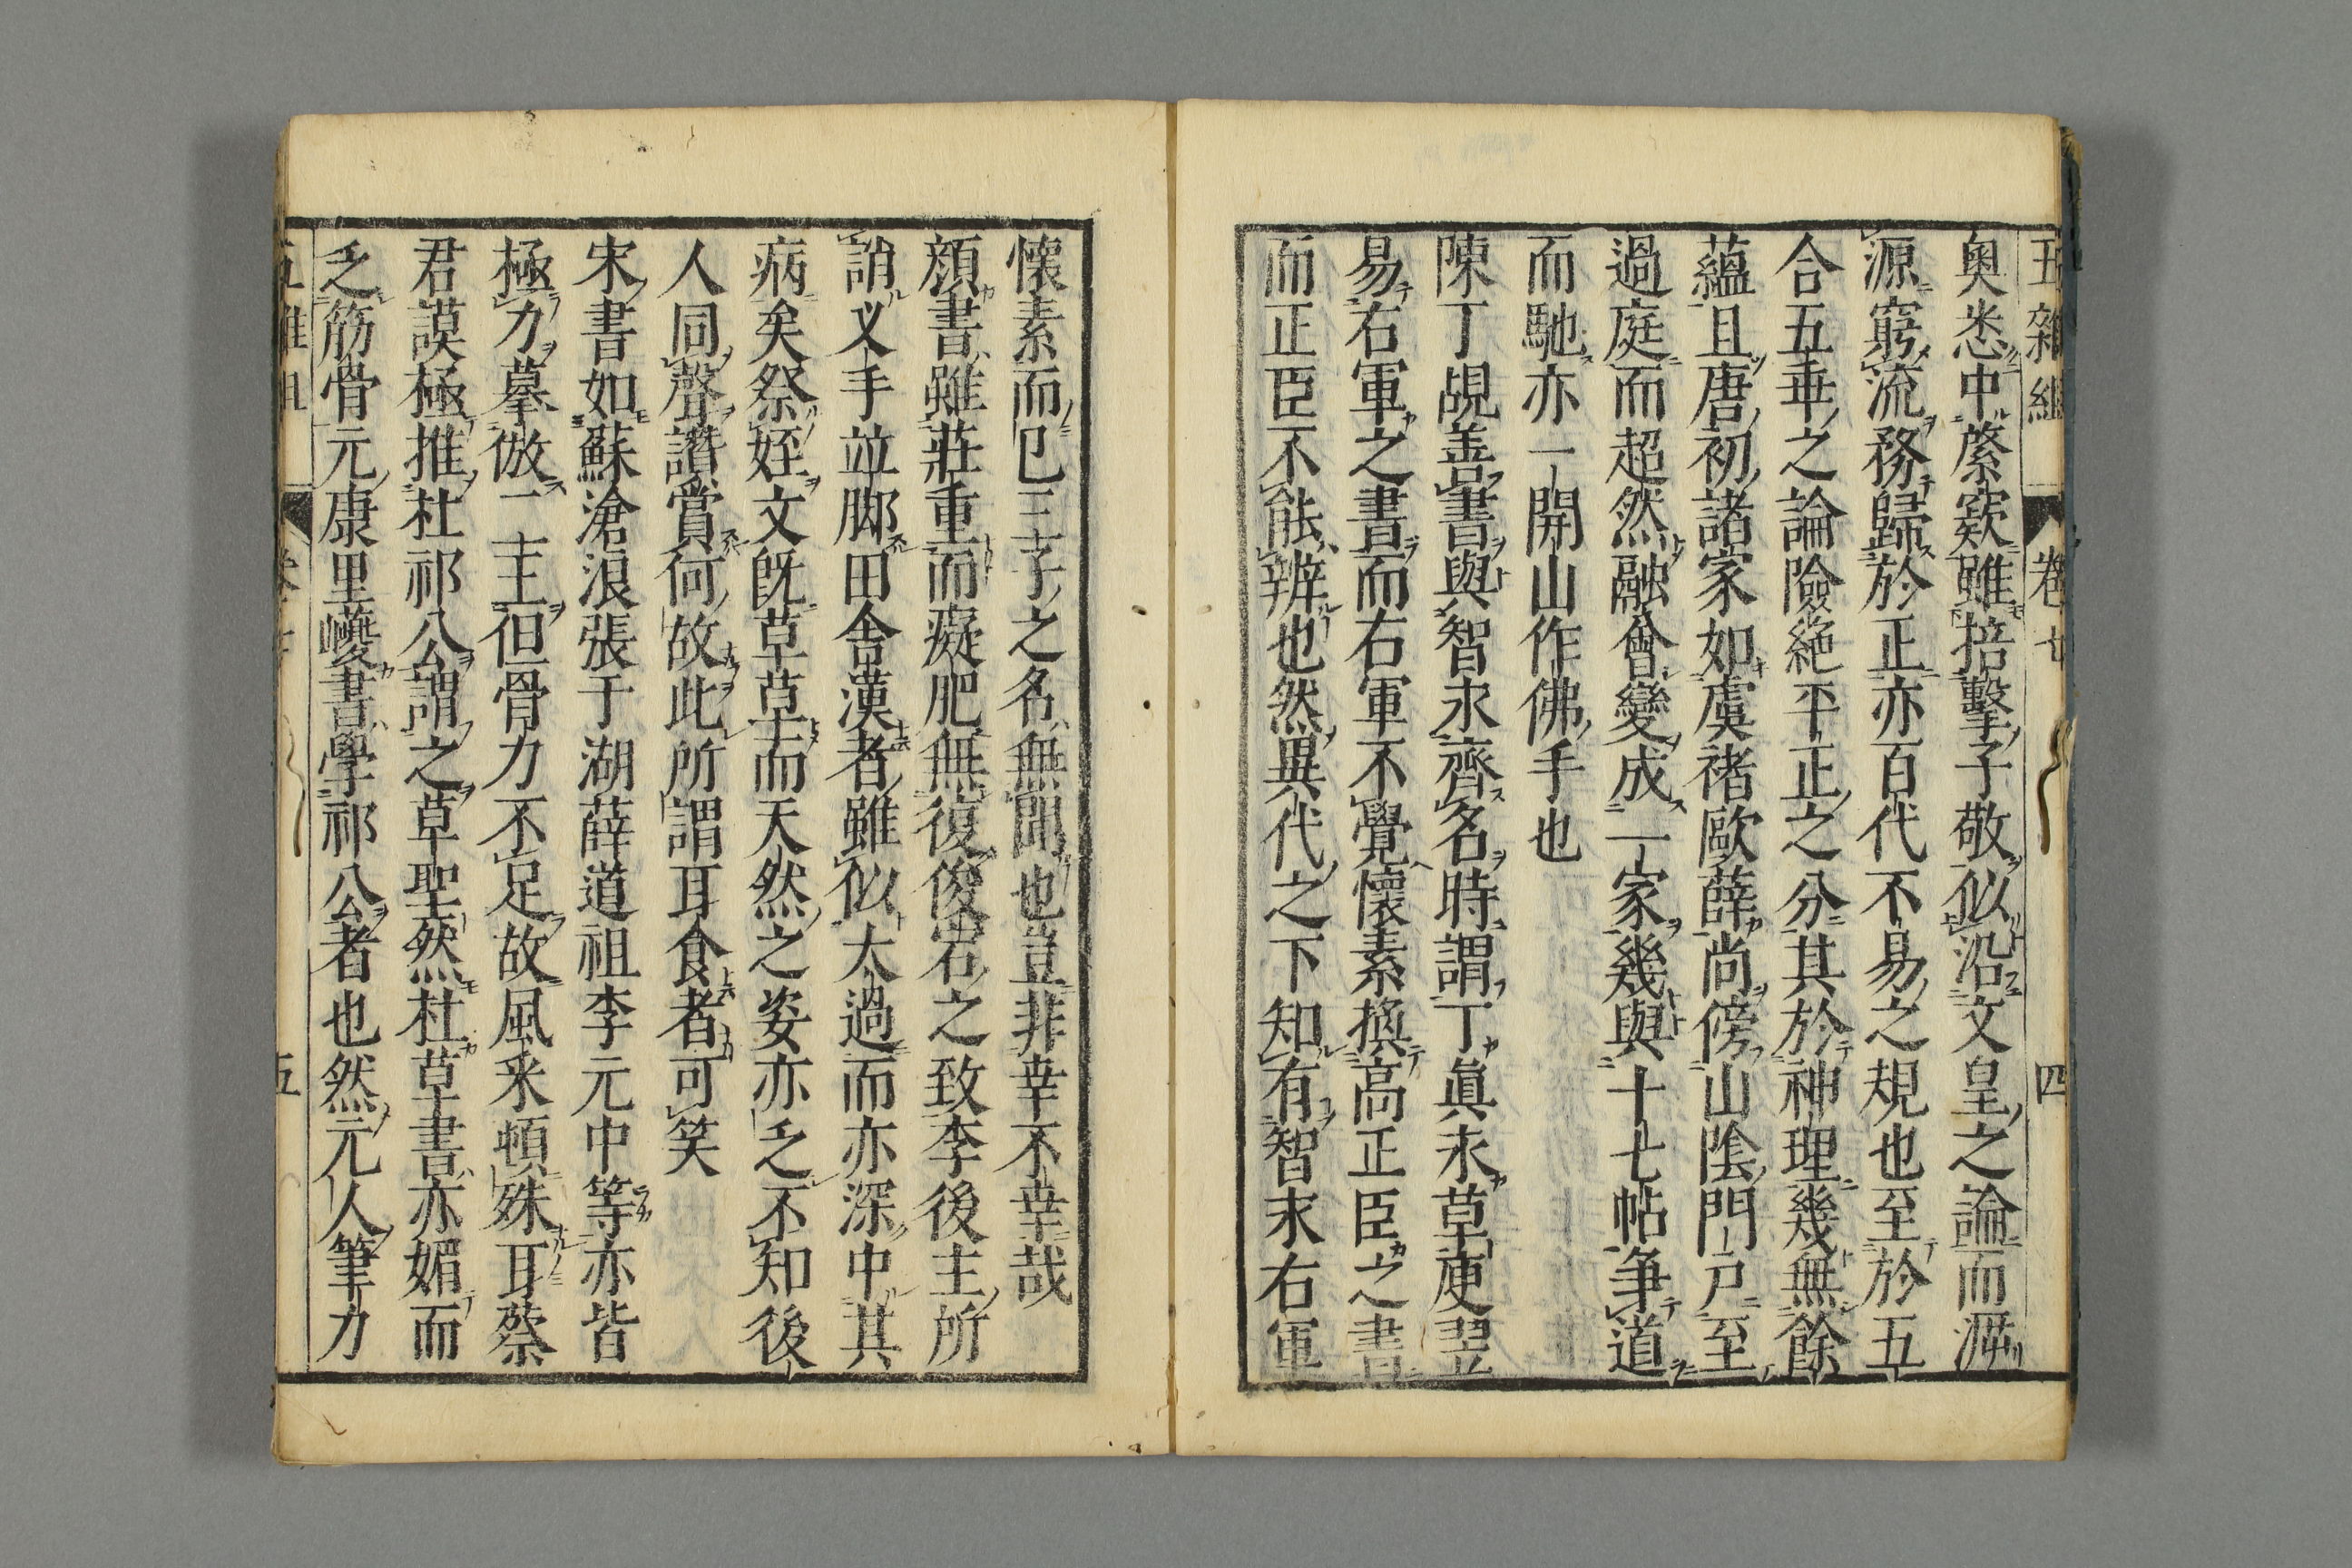 五雜組 卷七 四
奧悉中綮窾雖掊擊子敬似沿文皇之論而泝
源窮流務歸於正亦百代不易之規也至於五
合五乖之論險絶平正之分其於神理幾無餘
蘊且唐初諸家如虞褚歐薛尚傍山陰門戸至
過庭而超然融會變成一家幾與十七帖爭道
而馳亦一開山作佛手也
陳丁覘善書與智永齊名時謂丁眞永草庾翌
易右軍之書而右軍不覺懷素換高正臣之書
而正臣不能辨也然異代之下知有智永右軍
懷素而巳三子之名無聞也豈非幸不幸哉
顔書雖莊重而癡肥無復俊宕之致李後主所
誚义手竝脚田舍漢者雖似太過而亦深中其
病矣祭姪文旣草草而天然之姿亦乏不知後
人同聲讚賞何故此所謂耳食者可笑
宋書如蘇滄浪張于湖薛道祖李元中等亦皆
極力摹倣二王但骨力不足故風釆頓殊耳蔡
君謨極推杜祁公謂之草聖然杜草書亦媚而
乏筋骨元康里巎書學祁公者也然元人筆力
五雜組 五